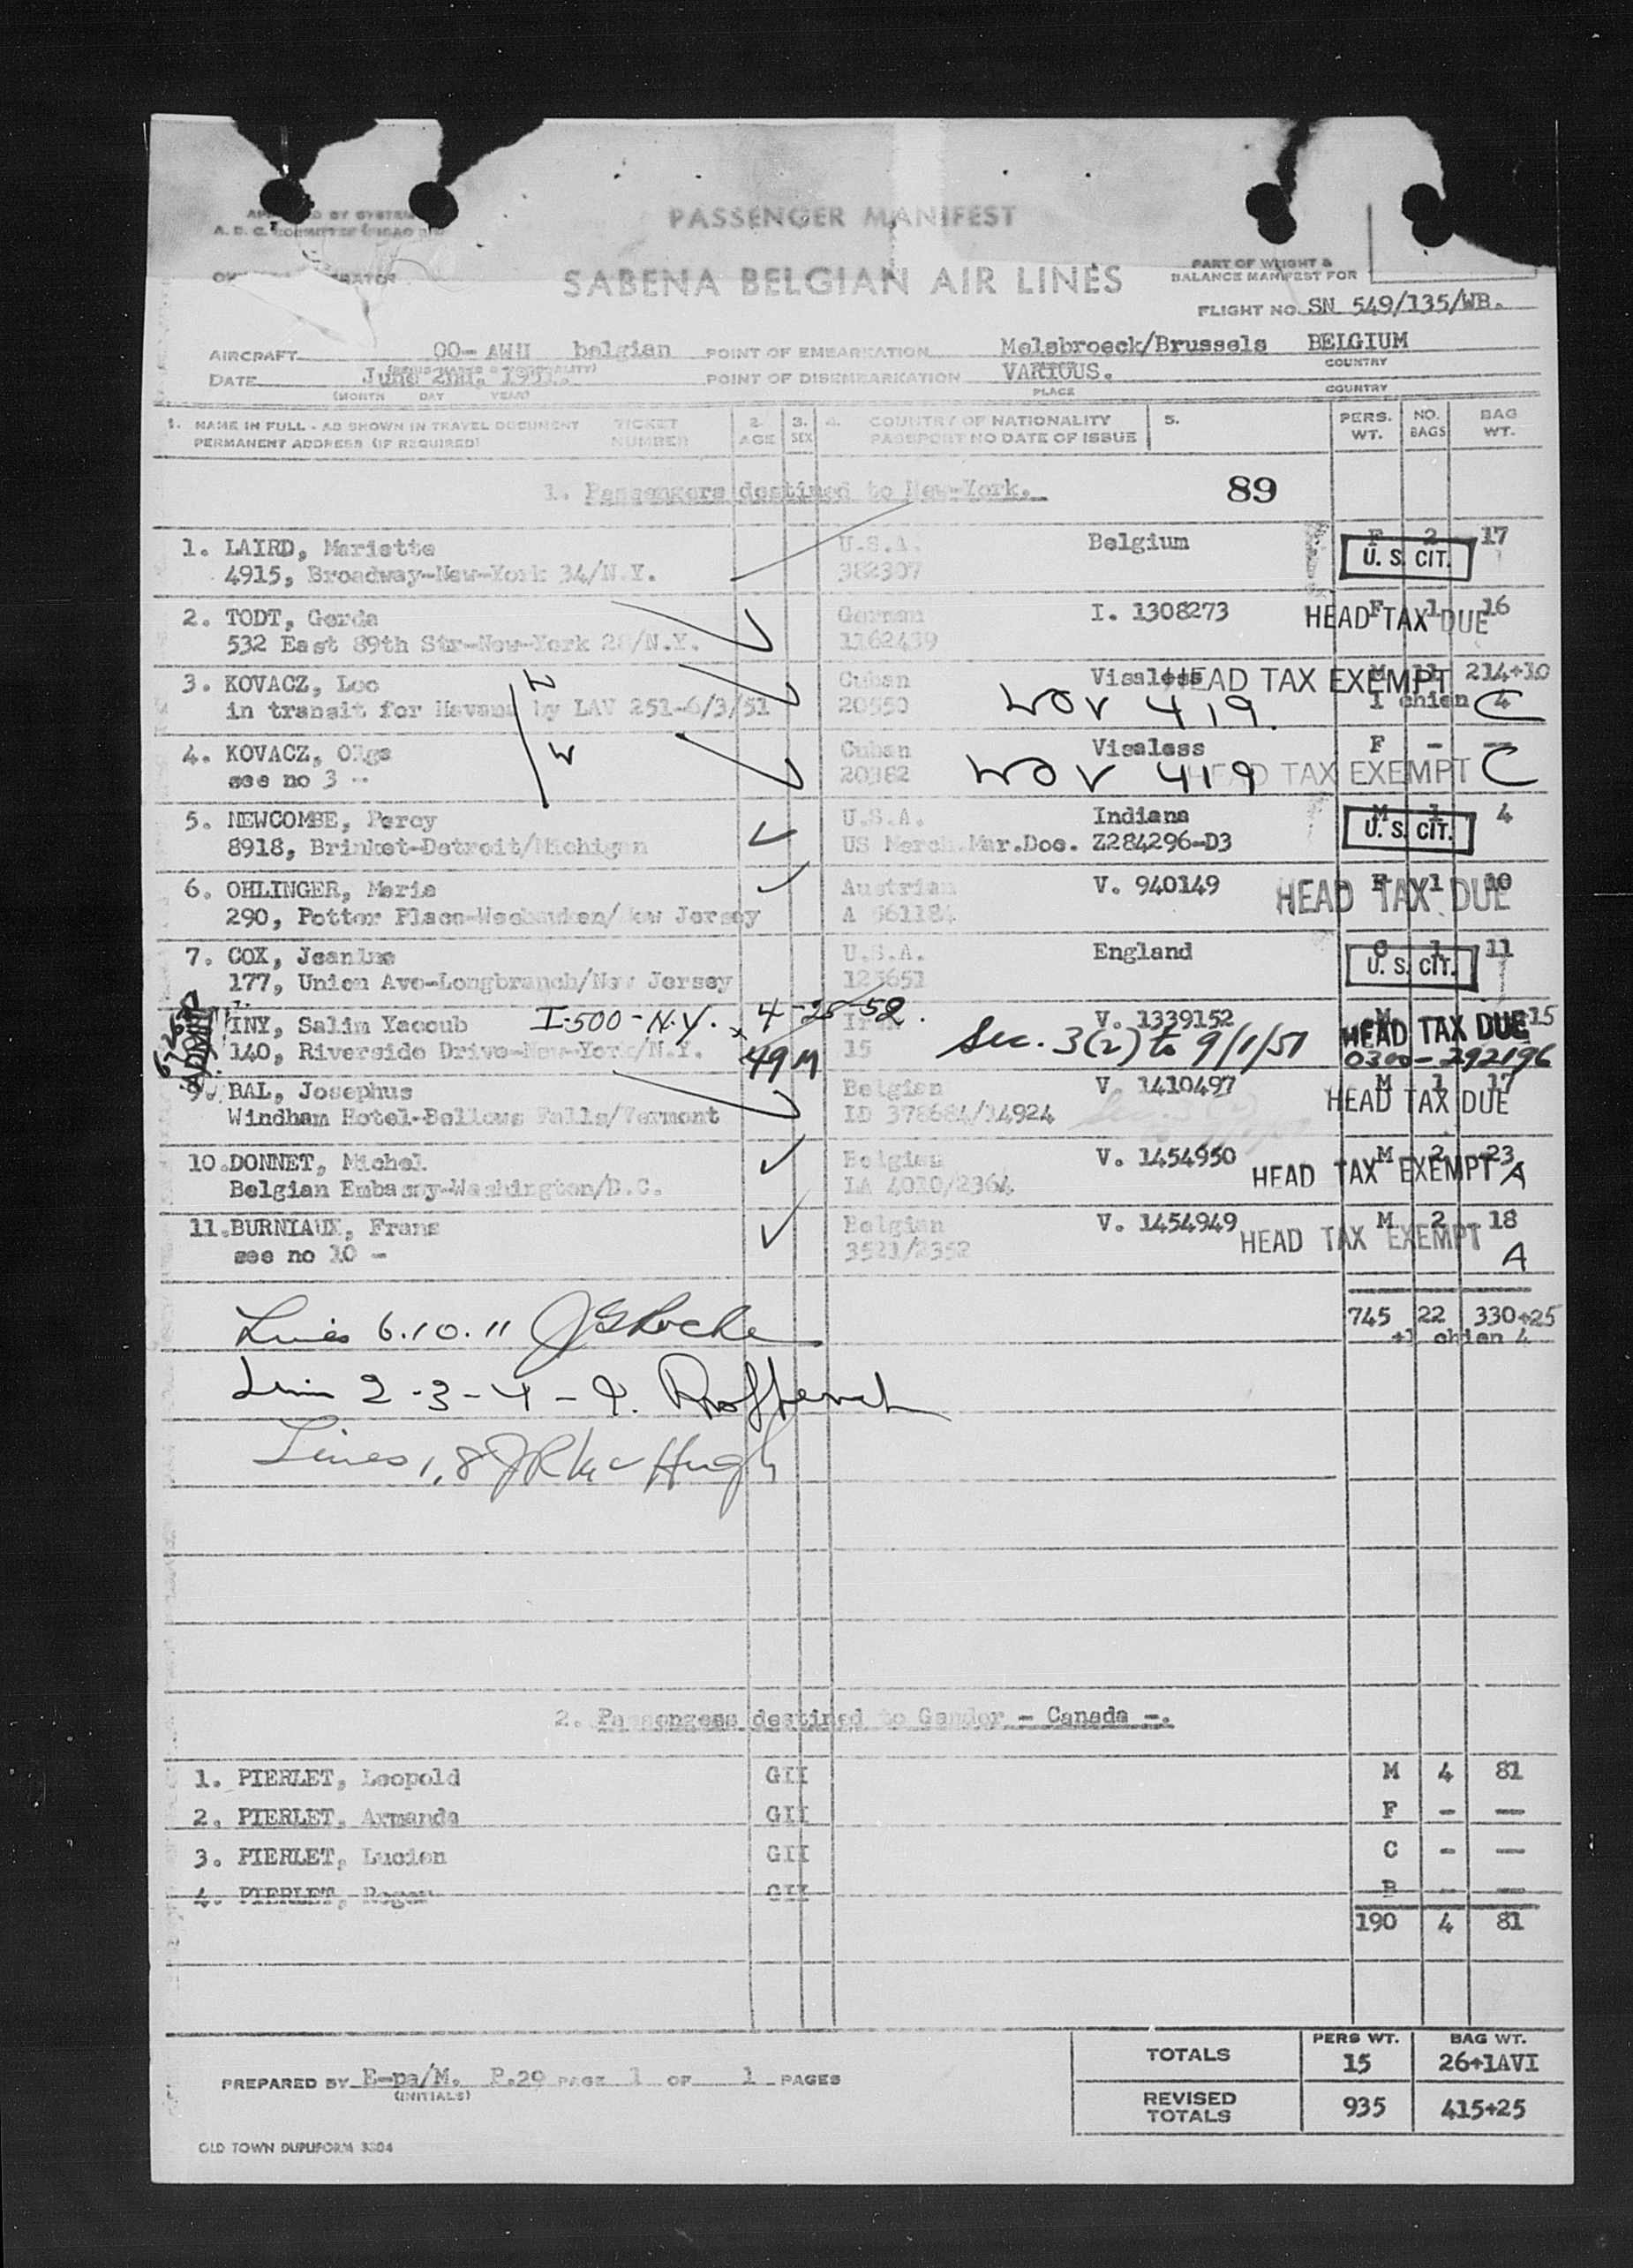 PASSENGER MANIFEST
SABENA BELGIAN AIR LINES
PART OF WEIGHT &
BALANCE MANIFEST FOR
FLIGHT NO. SN 549/135/WB.
AIRCRAFT belgian POINT OF EMBARKATION Melsbroeck/Brussels BELGIUM
COUNTRY
DATE June 2nd, 1951. POINT OF DISEMBARKATION VARIOUS.
(MONTH DAY YEAR) PLACE COUNTRY
1. NAME IN FULL - AS SHOWN IN TRAVEL DOCUMENT TICKET 2. 3. 4. COUNTRY OF NATIONALITY 5. PERS. NO. BAG
PERMANENT ADDRESS (IF REQUIRED) NUMBER AGE SEX PASSPORT NO DATE OF ISSUE WT. BAGS WT.
1. Passengers destined to New-York. 89
1. LAIRD, Mariette U.S.A. Belgium F 2 17
4915, Broadway-New-York 34/N.Y. 382307 U. S. CIT.
2. TODT, Gerda German I. 1308273 F 1 16
HEAD TAX DUE
532 East 89th Str-New-York 28/N.Y. 1162439
3. KOVACZ, Leo Cuban Visaless M 11 214+10
HEAD TAX EXEMPT
in transit for Havana by LAV 251-6/3/51 20550 WOV 419 1 chien 4 C
4. KOVACZ, Olga Cuban Visaless F - -
see no 3 - 20382 WOV 419 HEAD TAX EXEMPT C
5. NEWCOMBE, Percy U.S.A. Indiana M 1 4
8918, Brinket-Detroit/Michigan US Merch.Mar.Doc. Z284296-D3 U. S. CIT.
6. OHLINGER, Maria Austrian V. 940149 F 1 10
HEAD TAX DUE
290, Potter Place-Weehauken/New Jersey
7. COX, Jeanine U.S.A. England C 1 11
177, Union Ave-Longbranch/New Jersey 123651 U. S. CIT.
INY, Salim Yacoub I-500-N.Y. 4-28-52. V. 1339152 M
HEAD TAX DUE
140, Riverside Drive-New-York/N.Y. 49 M 15 Sec. 3(2) to 9/1/51 0300-292196
9. BAL, Josephus Belgian V. 1410497 M 1 17
Windham Hotel-Bellows Falls/Vermont ID 378684/34924 HEAD TAX DUE
10. DONNET, Michel Belgian V. 1454950 M 2 23
Belgian Embassy-Washington/D.C. LA 4010/2364 HEAD TAX EXEMPT A
11. BURNIAUX, Frans Belgian V. 1454949 M 2 18
HEAD TAX EXEMPT
see no 10 - 3521/2352 A
745 22 330+25
+1 chien 4
Lines 6.10.11 JGRoche
2-3-4-9.
Lines 1,8 JR McHugh
2. Passengess destined to Gander - Canada -.
1. PIERLET, Leopold GII M 4 81
2. PIERLET, Armanda GII F - -
3. PIERLET, Lucien GII C - -
4. PIERLET, Roger GII B - -
190 4 81
TOTALS PERS WT. BAG WT.
15 26+1AVI
PREPARED BY E-pa/M. P.29 PAGE 1 OF 1 PAGES
(INITIALS)
REVISED TOTALS 935 415+25
OLD TOWN DUPLIFORM 3804